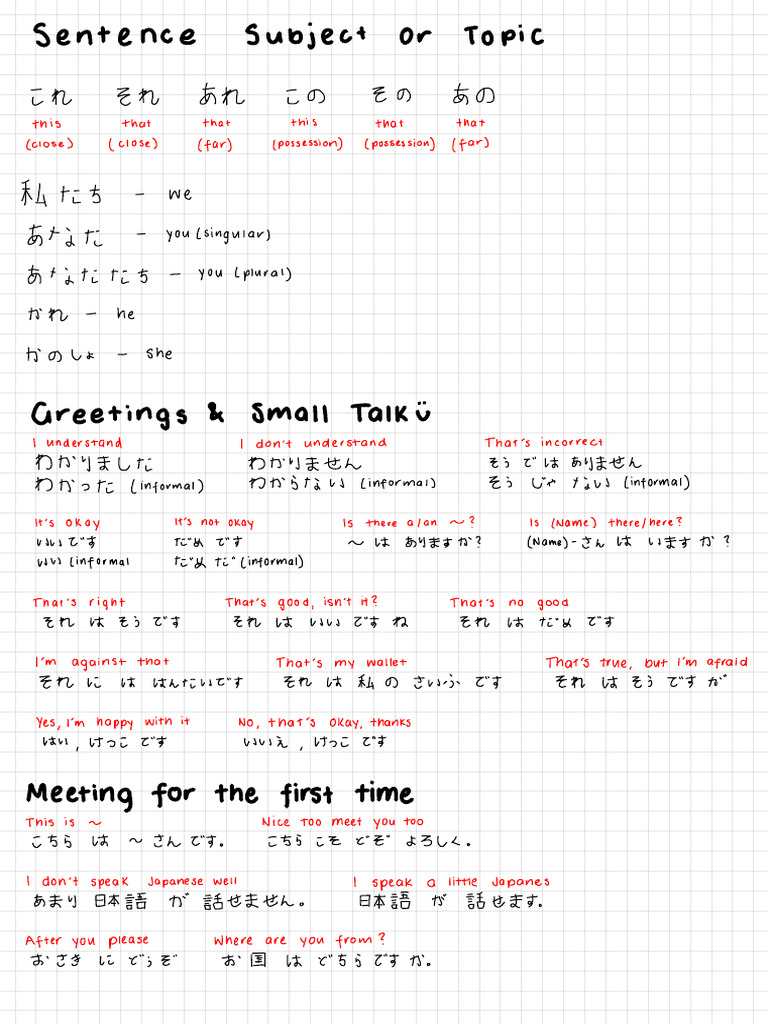 Sentence Subject or Topic
これ それ あれ この その あの
this that that this that that
(close) (close) (far) (possession) (possession) (far)
私たち - we
あなた - you (singular)
あなたたち - you (plural)
かれ - he
かのしょ - she
Greetings & Small Talk
I understand I don't understand That's incorrect
わかりました わかりません そう では ありません
わかった (informal) わからない (informal) そう じゃ ない (informal)
It's okay It's not okay Is there a/an ~? Is (Name) there/here?
いいです だめ です ~ は ありますか? (Name)-さん は います か?
いい (informal だめ だ (informal)
That's right That's good, isn't it? That's no good
それ は そう です それ は いい です ね それ は だめ です
I'm against that That's my wallet That's true, but i'm afraid
それ に は はんたいです それ は 私 の さいふ です それ は そう です が
Yes, I'm happy with it No, that's okay, thanks
はい, けっこ です いいえ, けっこ です
Meeting for the first time
This is ~ Nice too meet you too
こちら は ~ さん です。 こちら こそ どぞ よろしく.
I don't speak Japanese well I speak a little Japanes
あまり 日本語 が 話せません。 日本語 が 話せます。
After you please Where are you from?
おさき に どうぞ お 国 は どちら です か。